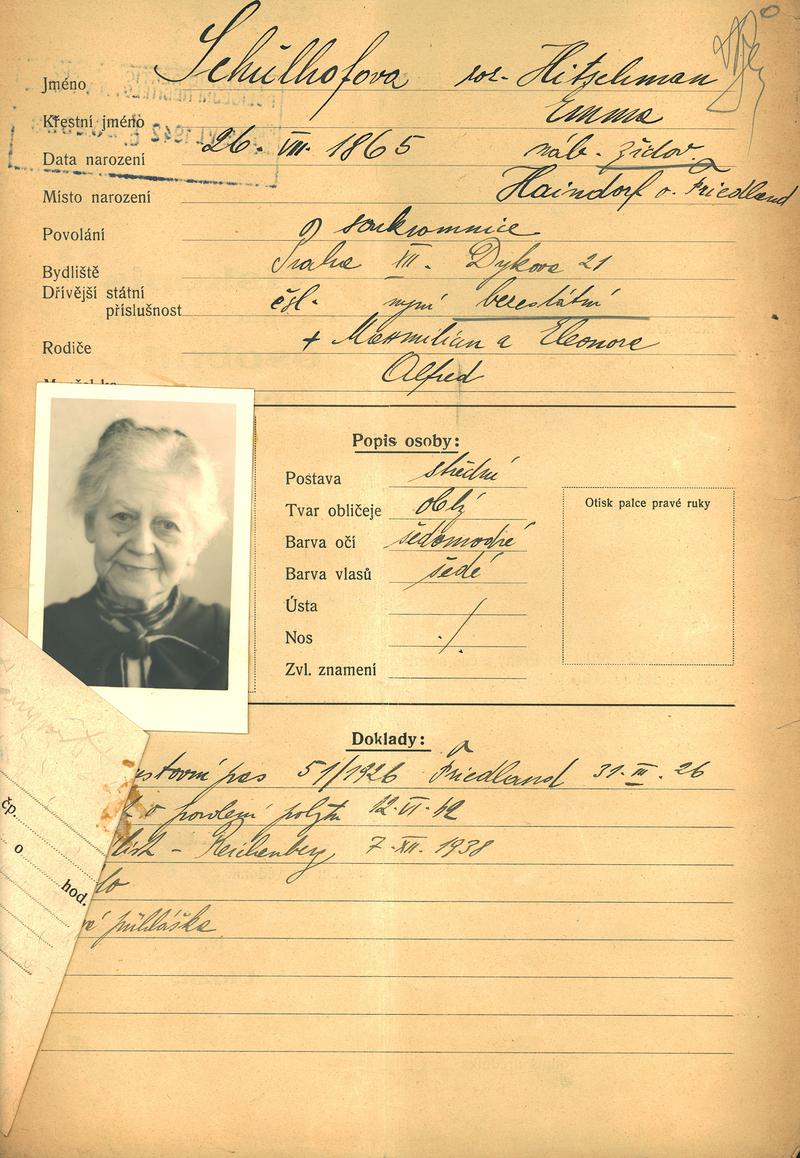 Jméno Schülhofova roz. Hitschman
Křestní jméno Emma
Data narození 26. VIII. 1865 náb. židov.
Místo narození Haindorf o. Friedland
Povolání soukromnice
Bydliště Praha XII. Dykova 21
Dřívější státní
příslušnost čsl. nyní bezestátní
Rodiče + Maxmilian a Eleonora
Alfred
Popis osoby:
Postava střední
Tvar obličeje oblý
Barva očí šedomodré
Barva vlasů šedé
Ústa /
Nos ./.
Zvl. znamení
Otisk palce pravé ruky
Doklady:
pas 51/1926 Friedland 31. III. 26
o povolení pobytu 12. VI. 42
list - Reichenberg 7. XII. 1938
přihláška
čp.
o
hod.